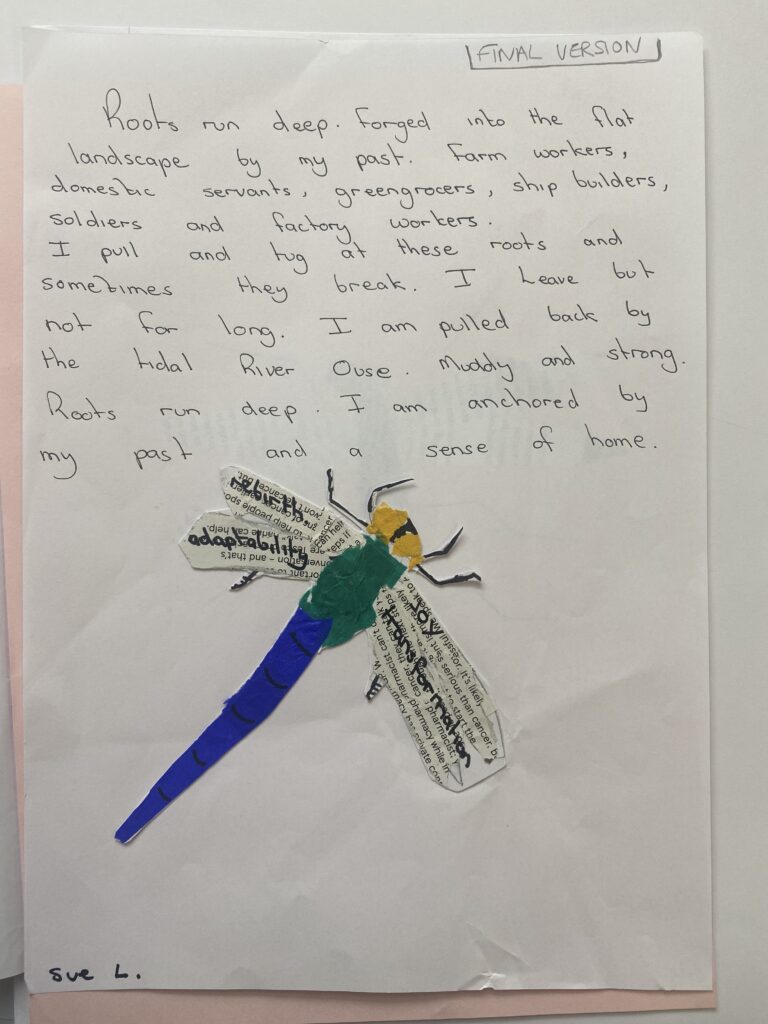 FINAL VERSION
Roots run deep. Forged into the flat
landscape by my past. Farm workers,
domestic servants, greengrocers, ship builders,
soldiers and factory workers.
I pull and tug at these roots and
sometimes they break. I leave but
not for long. I am pulled back by
the tidal River Ouse. Muddy and strong.
Roots run deep. I am anchored by
my past and a sense of home.
rebirth.
adaptability
Joy
transformation
Sue L.